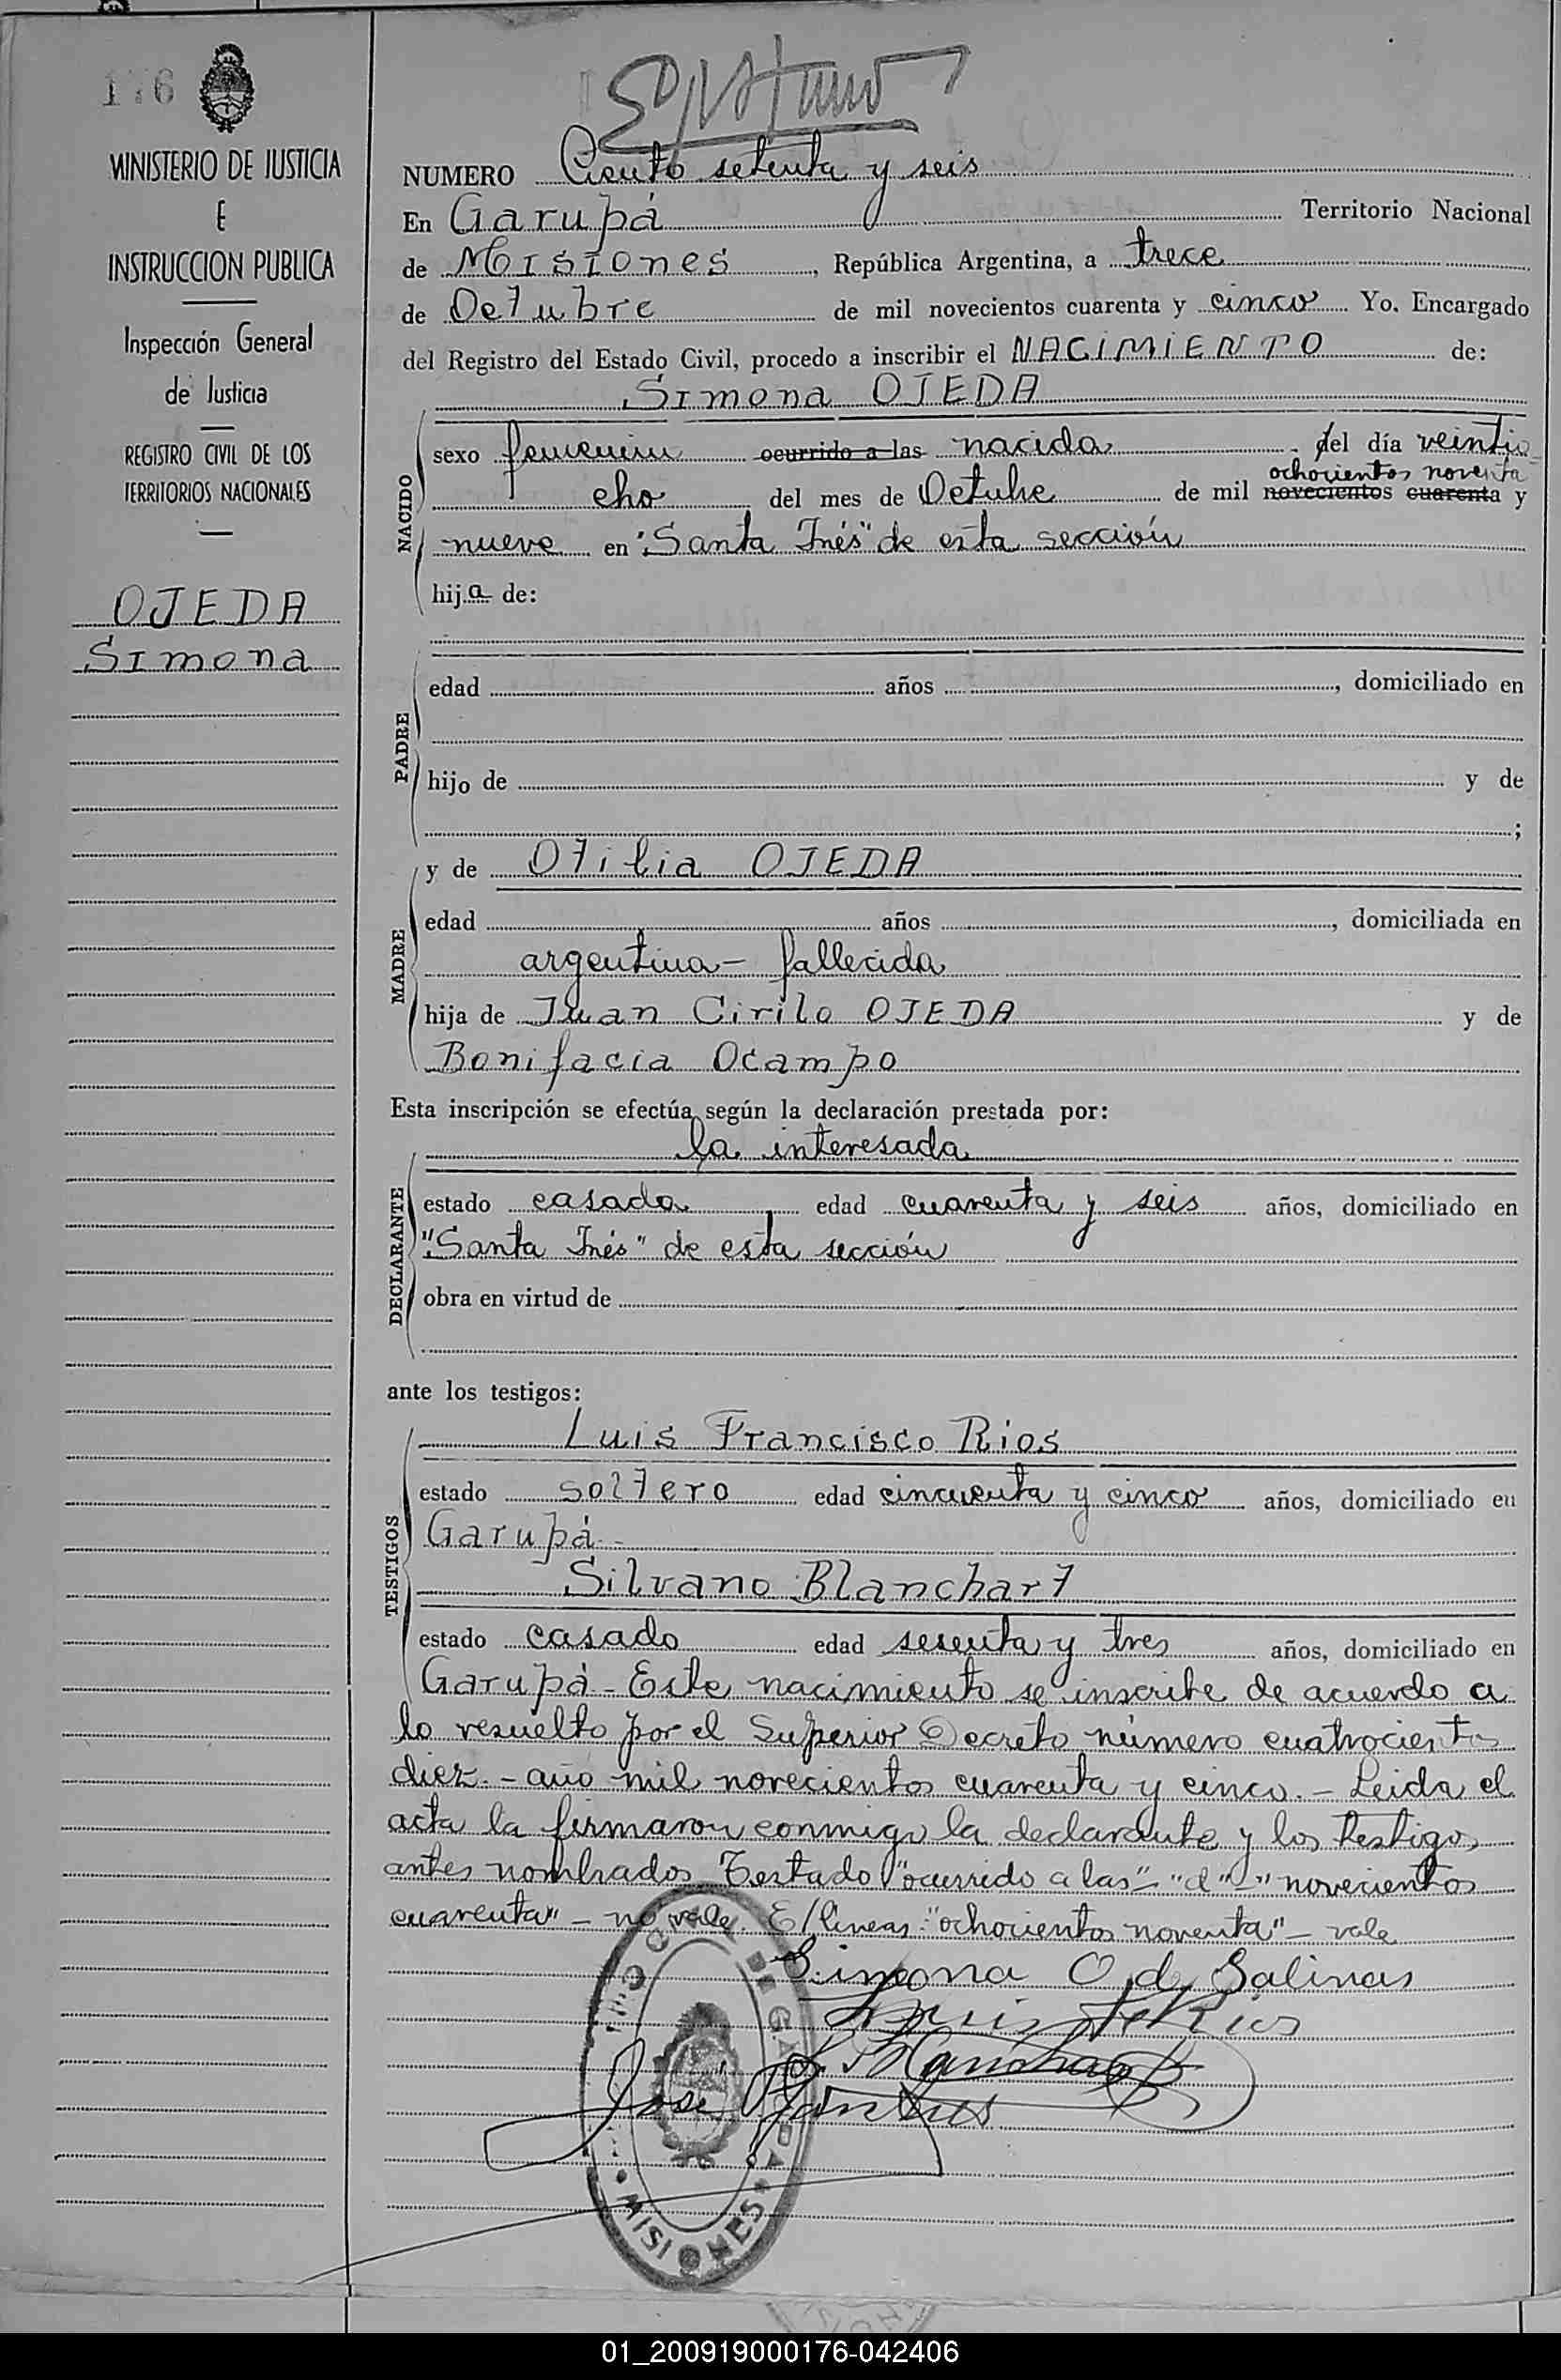 176
MINISTERIO DE JUSTICIA
E
INSTRUCCION PUBLICA
Inspección General
de Justicia
REGISTRO CIVIL DE LOS
TERRITORIOS NACIONALES
OJEDA
Simona
NUMERO Ciento setenta y seis
En Garupá Territorio Nacional
de Misiones, República Argentina, a trece
de Octubre de mil novecientos cuarenta y cinco Yo, Encargado
del Registro del Estado Civil, procedo a inscribir el NACIMIENTO de:
Simona OJEDA
NACIDO
sexo femenino ocurrido a las nacida del día veintio
cho del mes de Octubre de mil novecientos cuarenta y
ochocientos noventa
nueve en "Santa Inés" de esta sección
hija de:
PADRE
edad años, domiciliado en
hijo de y de
;
MADRE
y de Otilia OJEDA
edad años, domiciliada en
argentina - fallecida
hija de Juan Cirilo OJEDA y de
Bonifacia Ocampo
Esta inscripción se efectúa según la declaración prestada por:
la interesada
DECLARANTE
estado casada edad cuarenta y seis años, domiciliado en
"Santa Inés" de esta sección
obra en virtud de
ante los testigos:
TESTIGOS
Luis Francisco Rios
estado soltero edad cincuenta y cinco años, domiciliado en
Garupá -
Silvano Blanchart
estado casado edad sesenta y tres años, domiciliado en
Garupá - Este nacimiento se inscribe de acuerdo a
lo resuelto por el Superior Decreto número cuatrocientos
diez. - año mil novecientos cuarenta y cinco. - Leida el
acta la firmaron conmigo la declarante y los testigos
antes nombrados Testado "ocurrido a las" - "d" - "novecientos
cuarenta" - no vale. E/lineas: "ochocientos noventa" - vale
Simona O. de Salinas
Luis F. Rios
S. Blanchart
José
CIVIL DE GARUPA
MISIONES
01_200919000176-042406